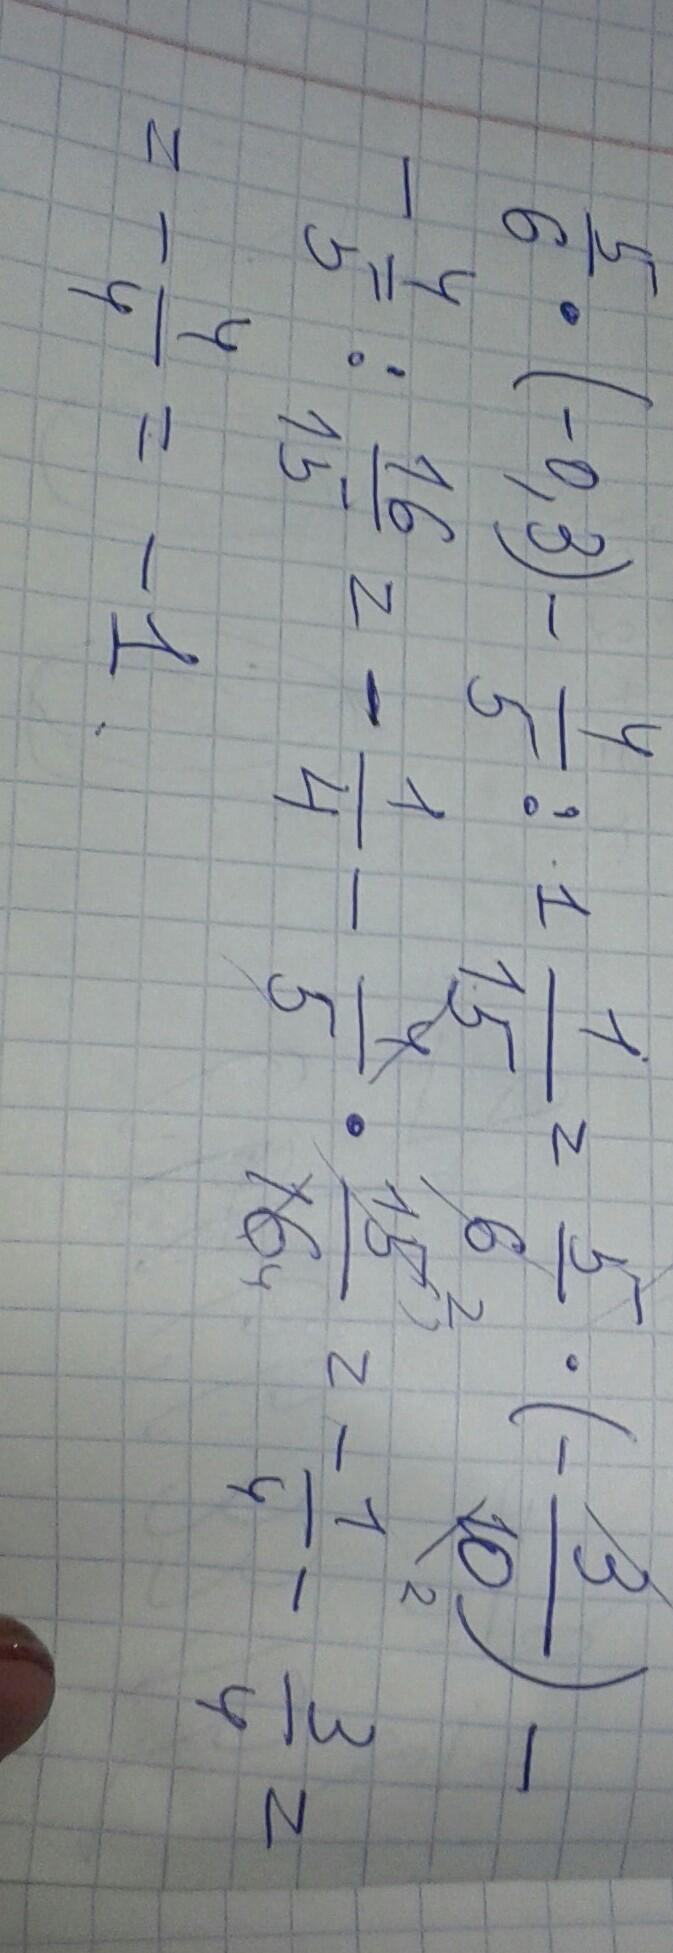 5/6 · (-0,3) - 4/5 : 1 1/15 = 5/6 2 · (- 3/10 2) -
- 4/5 : 16/15 = - 1/4 - 4/5 · 15 3/16 4 = - 1/4 - 3/4 =
= - 4/4 = - 1.